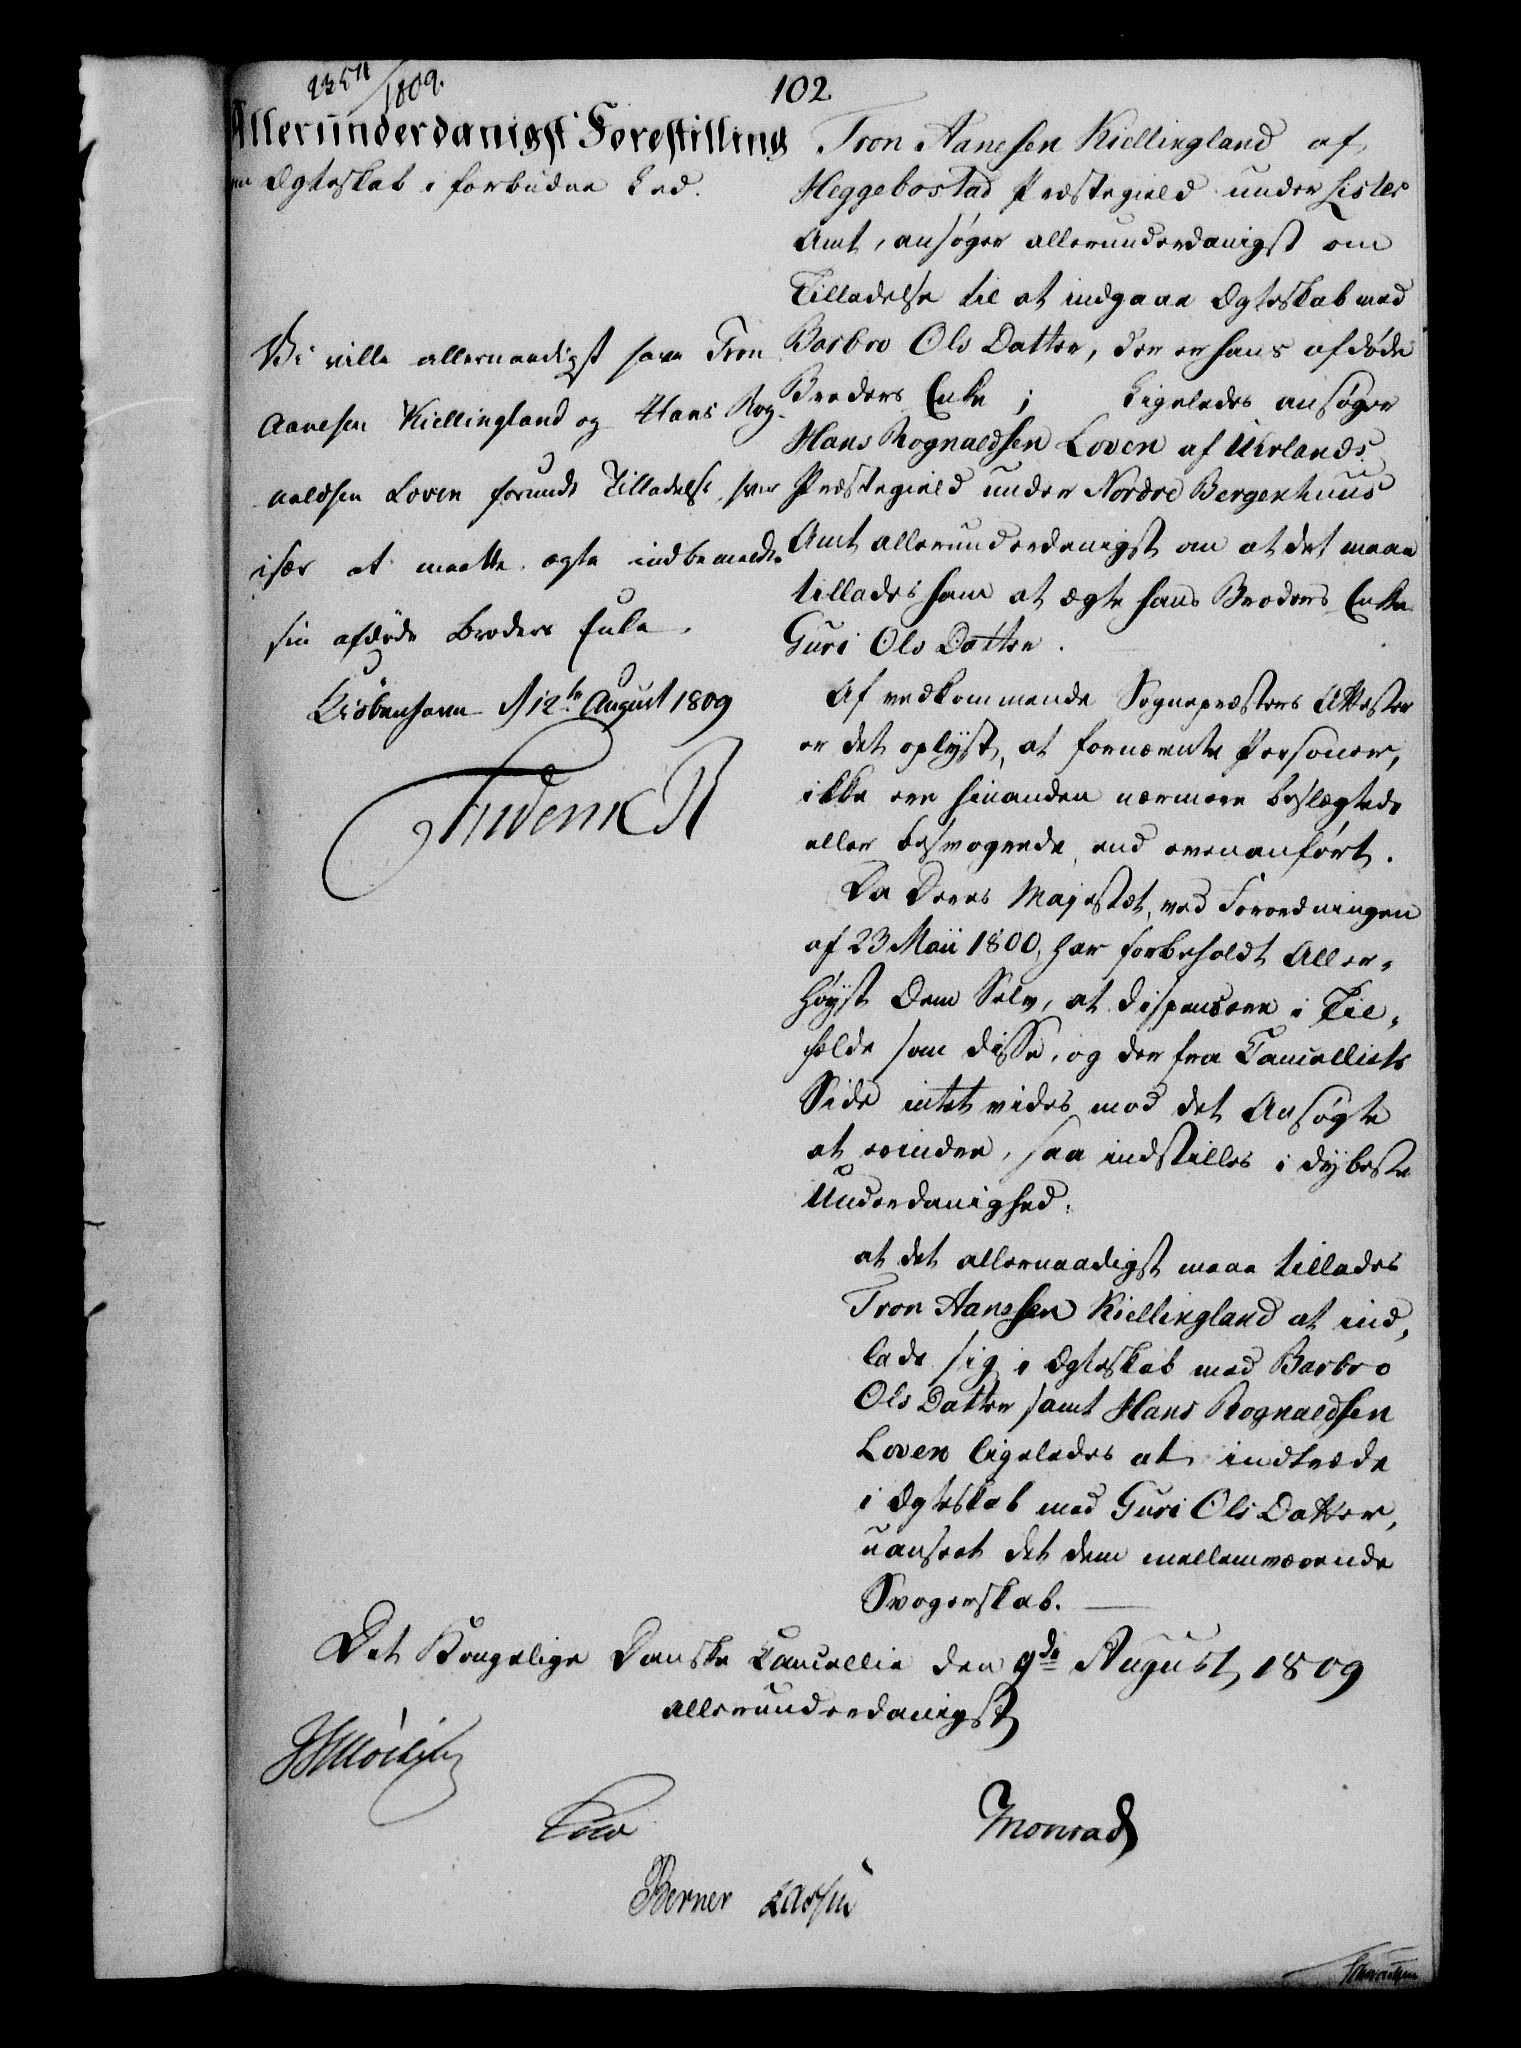 1809.
102
Allerunderdanigst Forestilling
om Ægteskab i forbudne Led.
Vi ville allernaadigst have Tron
Aanesen Kiellingland og Hans Rog-
naldsen Loven forundt Tilladelse, hver
især at maatte ægte indbemeldte
sin afdøde Broders Enke.
Kiöbenhavn d 12te August 1809
Frederik R
Tron Aanesen Kiellingland af
Heggebostad Præstegield under Lister
Amt, ansøger allerunderdanigst om
Tilladelse til at indgaae Ægteskab med
Barbro Ols Datter, der er hans afdøde
Broders Enke; Ligeledes ansøger
Hans Rognaldsen Loven af Uirlands
Præstegield under Nordre Bergenhuus
Amt allerunderdanigst om at det maae
tillades ham at ægte hans Broders Enke
Guri Ols Datter.
Af vedkommende Sognepræsters Attester
er det oplyst, at fornævnte Personer,
ikke ere hinanden nærmere beslægtede
eller besvogrede, end ovenanført.
Da Deres Majestæt, ved Forordningen
af 23 Maii 1800, har forbeholdt Aller-
høyst Dem Selv, at dispensere i Til-
fælde som disse, og der fra Cancelliets
Side intet vides mod det Ansøgte
at erindre, saa indstilles i dybeste
Underdanighed:
at det allernaadigst maae tillades
Tron Aanesen Kiellingland at ind-
lade sig i Ægteskab med Barbro
Ols Datter samt Hans Rognaldsen
Loven ligeledes at indtræde
i Ægteskab med Guri Ols Datter,
uanseet det dem mellemværende
Svogerskab.
Det Kongelige Danske Cancellie den 9de August 1809
allerunderdanigst
Monrad
Berner Lassen